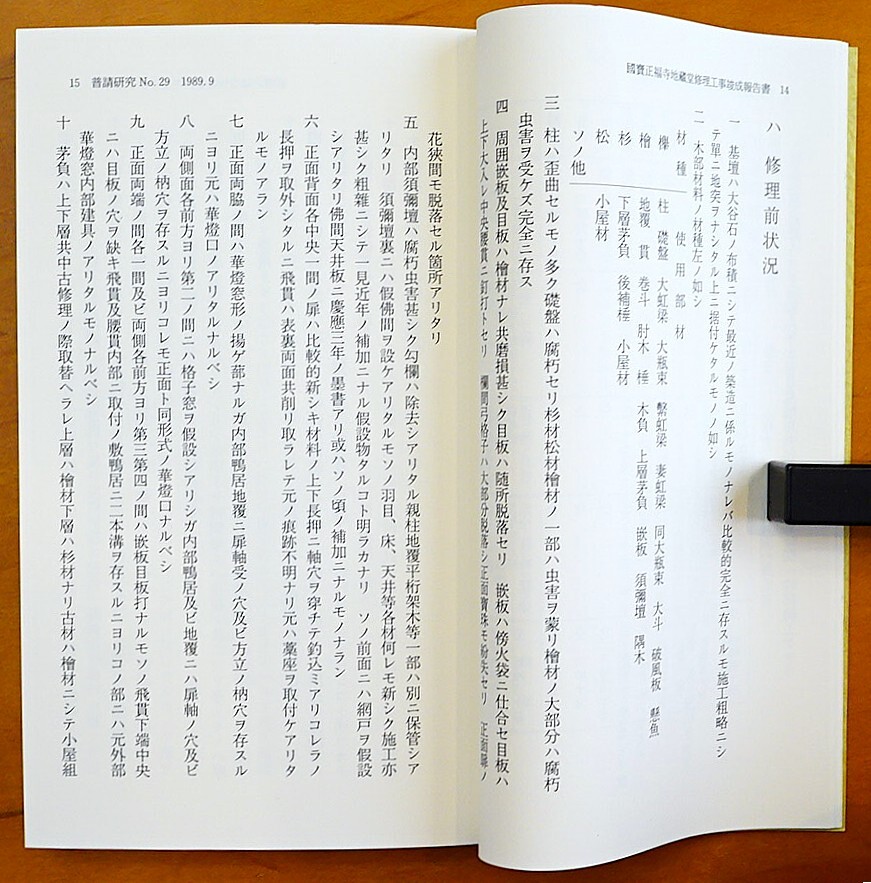 國寶正福寺地藏堂修理工事竣成報告書 14
ハ 修理前状況
一 基壇ハ大谷石ノ布積ニシテ最近ノ築造ニ係ルモノナレバ比較的完全ニ存スルモ施工粗略ニシ
テ單ニ地突ヲナシタル上ニ据付ケタルモノノ如シ
二 木部材料ノ材種左ノ如シ
材種 使用部材
欅 柱 礎盤 大虹梁 大瓶束 繫虹梁 妻虹梁 同大瓶束 大斗 破風板 懸魚
檜 地覆 貫 巻斗 肘木 棰 木負 上層茅負 嵌板 須彌壇 隅木
杉 下層茅負 後補棰 小屋材
松 小屋材
ソノ他
三 柱ハ歪曲セルモノ多ク礎盤ハ腐朽セリ杉材松材檜材ノ一部ハ虫害ヲ蒙リ檜材ノ大部分ハ腐朽
虫害ヲ受ケズ完全ニ存ス
四 周囲嵌板及目板ハ檜材ナレ共磨損甚シク目板ハ随所脱落セリ 嵌板ハ傍火袋ニ仕合セ目板ハ
上下大入レ中央腰貫ニ釘打トセリ 欄間弓格子ハ大部分脱落シ正面寶珠モ紛失セリ 正面扉ノ
15 普請研究 No.29 1989.9
花狹間モ脱落セル箇所アリタリ
五 内部須彌壇ハ腐朽虫害甚シク勾欄ハ除去シアリタル親柱地覆平桁架木等一部ハ別ニ保管シア
リタリ 須彌壇裏ニハ假佛間ヲ設ケアリタルモソノ羽目、床、天井等各材何レモ新シク施工亦
甚シク粗雜ニシテ一見近年ノ補加ニナル假設物タルコト明ラカナリ ソノ前面ニハ網戸ヲ假設
シアリタリ佛間天井板ニ慶應三年ノ墨書アリ或ハソノ頃ノ補加ニナルモノナラン
六 正面背面各中央一間ノ扉ハ比較的新シキ材料ノ上下長押ニ軸穴ヲ穿チテ釣込ミアリコレラノ
長押ヲ取外シタルニ飛貫ハ表裏両面共削リ取ラレテ元ノ痕跡不明ナリ元ハ藁座ヲ取付ケアリタ
ルモノアラン
七 正面両脇ノ間ハ華燈窓形ノ揚ゲ蔀ナルガ内部鴨居地覆ニ扉軸受ノ穴及ビ方立ノ枘穴ヲ存スル
ニヨリ元ハ華燈口ノアリタルナルベシ
八 両側面各前方ヨリ第二ノ間ニハ格子窓ヲ假設シアリシガ内部鴨居及ビ地覆ニハ扉軸ノ穴及ビ
方立ノ枘穴ヲ存スルニヨリコレモ正面ト同形式ノ華燈口ナルベシ
九 正面両端ノ間各一間及ビ両側各前方ヨリ第三第四ノ間ハ嵌板目板打ナルモソノ飛貫下端中央
ニハ目板ノ穴ヲ缺キ飛貫及腰貫内部ニ取付ノ敷鴨居ニ二本溝ヲ存スルニヨリコノ部ニハ元外部
華燈窓内部建具ノアリタルモノナルベシ
十 茅負ハ上下層共中古修理ノ際取替ヘラレ上層ハ檜材下層ハ杉材ナリ古材ハ檜材ニシテ小屋組